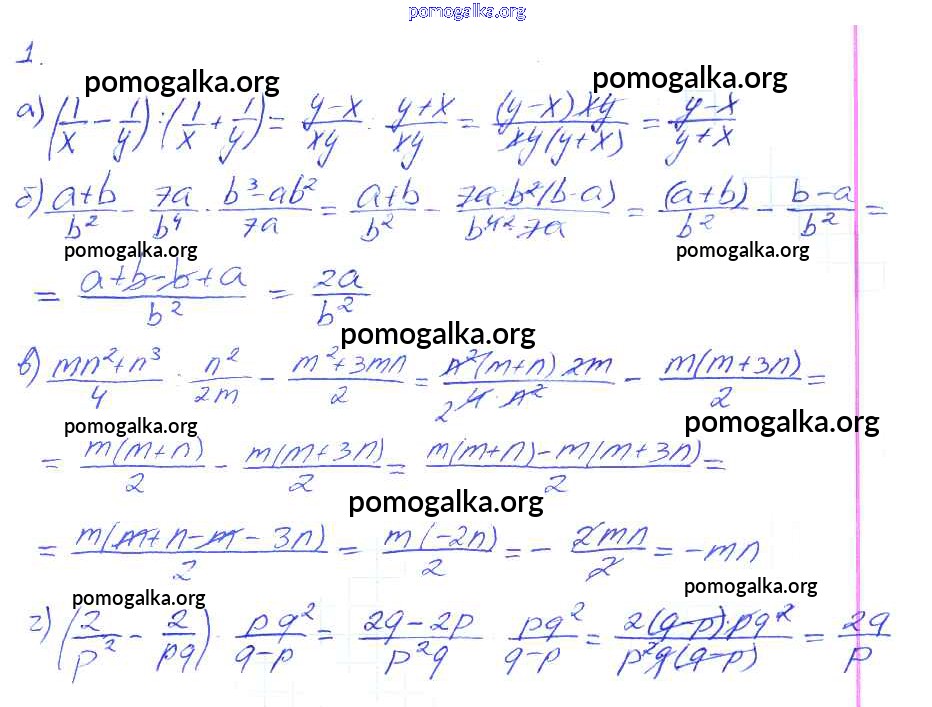 pomogalka.org
1.
pomogalka.org pomogalka.org
а) (1/x − 1/y) : (1/x + 1/y) = (y−x)/(xy) : (y+x)/(xy) = ((y−x)xy)/(xy(y+x)) = (y−x)/(y+x)
б) (a+b)/b² − 7a/b⁴ · (b³−ab²)/7a = (a+b)/b² − (7a·b²(b−a))/(b⁴²·7a) = (a+b)/b² − (b−a)/b² =
pomogalka.org pomogalka.org
= (a+b−b+a)/b² = 2a/b²
pomogalka.org
в) (mn²+n³)/4 : n²/2m − (m²+3mn)/2 = (n²(m+n)2m)/(₂4·n²) − m(m+3n)/2 =
pomogalka.org pomogalka.org
= m(m+n)/2 − m(m+3n)/2 = (m(m+n)−m(m+3n))/2 =
pomogalka.org
= m(m+n−m−3n)/2 = m(−2n)/2 = − 2mn/2 = −mn
pomogalka.org pomogalka.org
г) (2/p² − 2/pq) · pq²/(q−p) = (2q−2p)/p²q · pq²/(q−p) = (2(q−p)·pq²)/(p²q(q−p)) = 2q/p